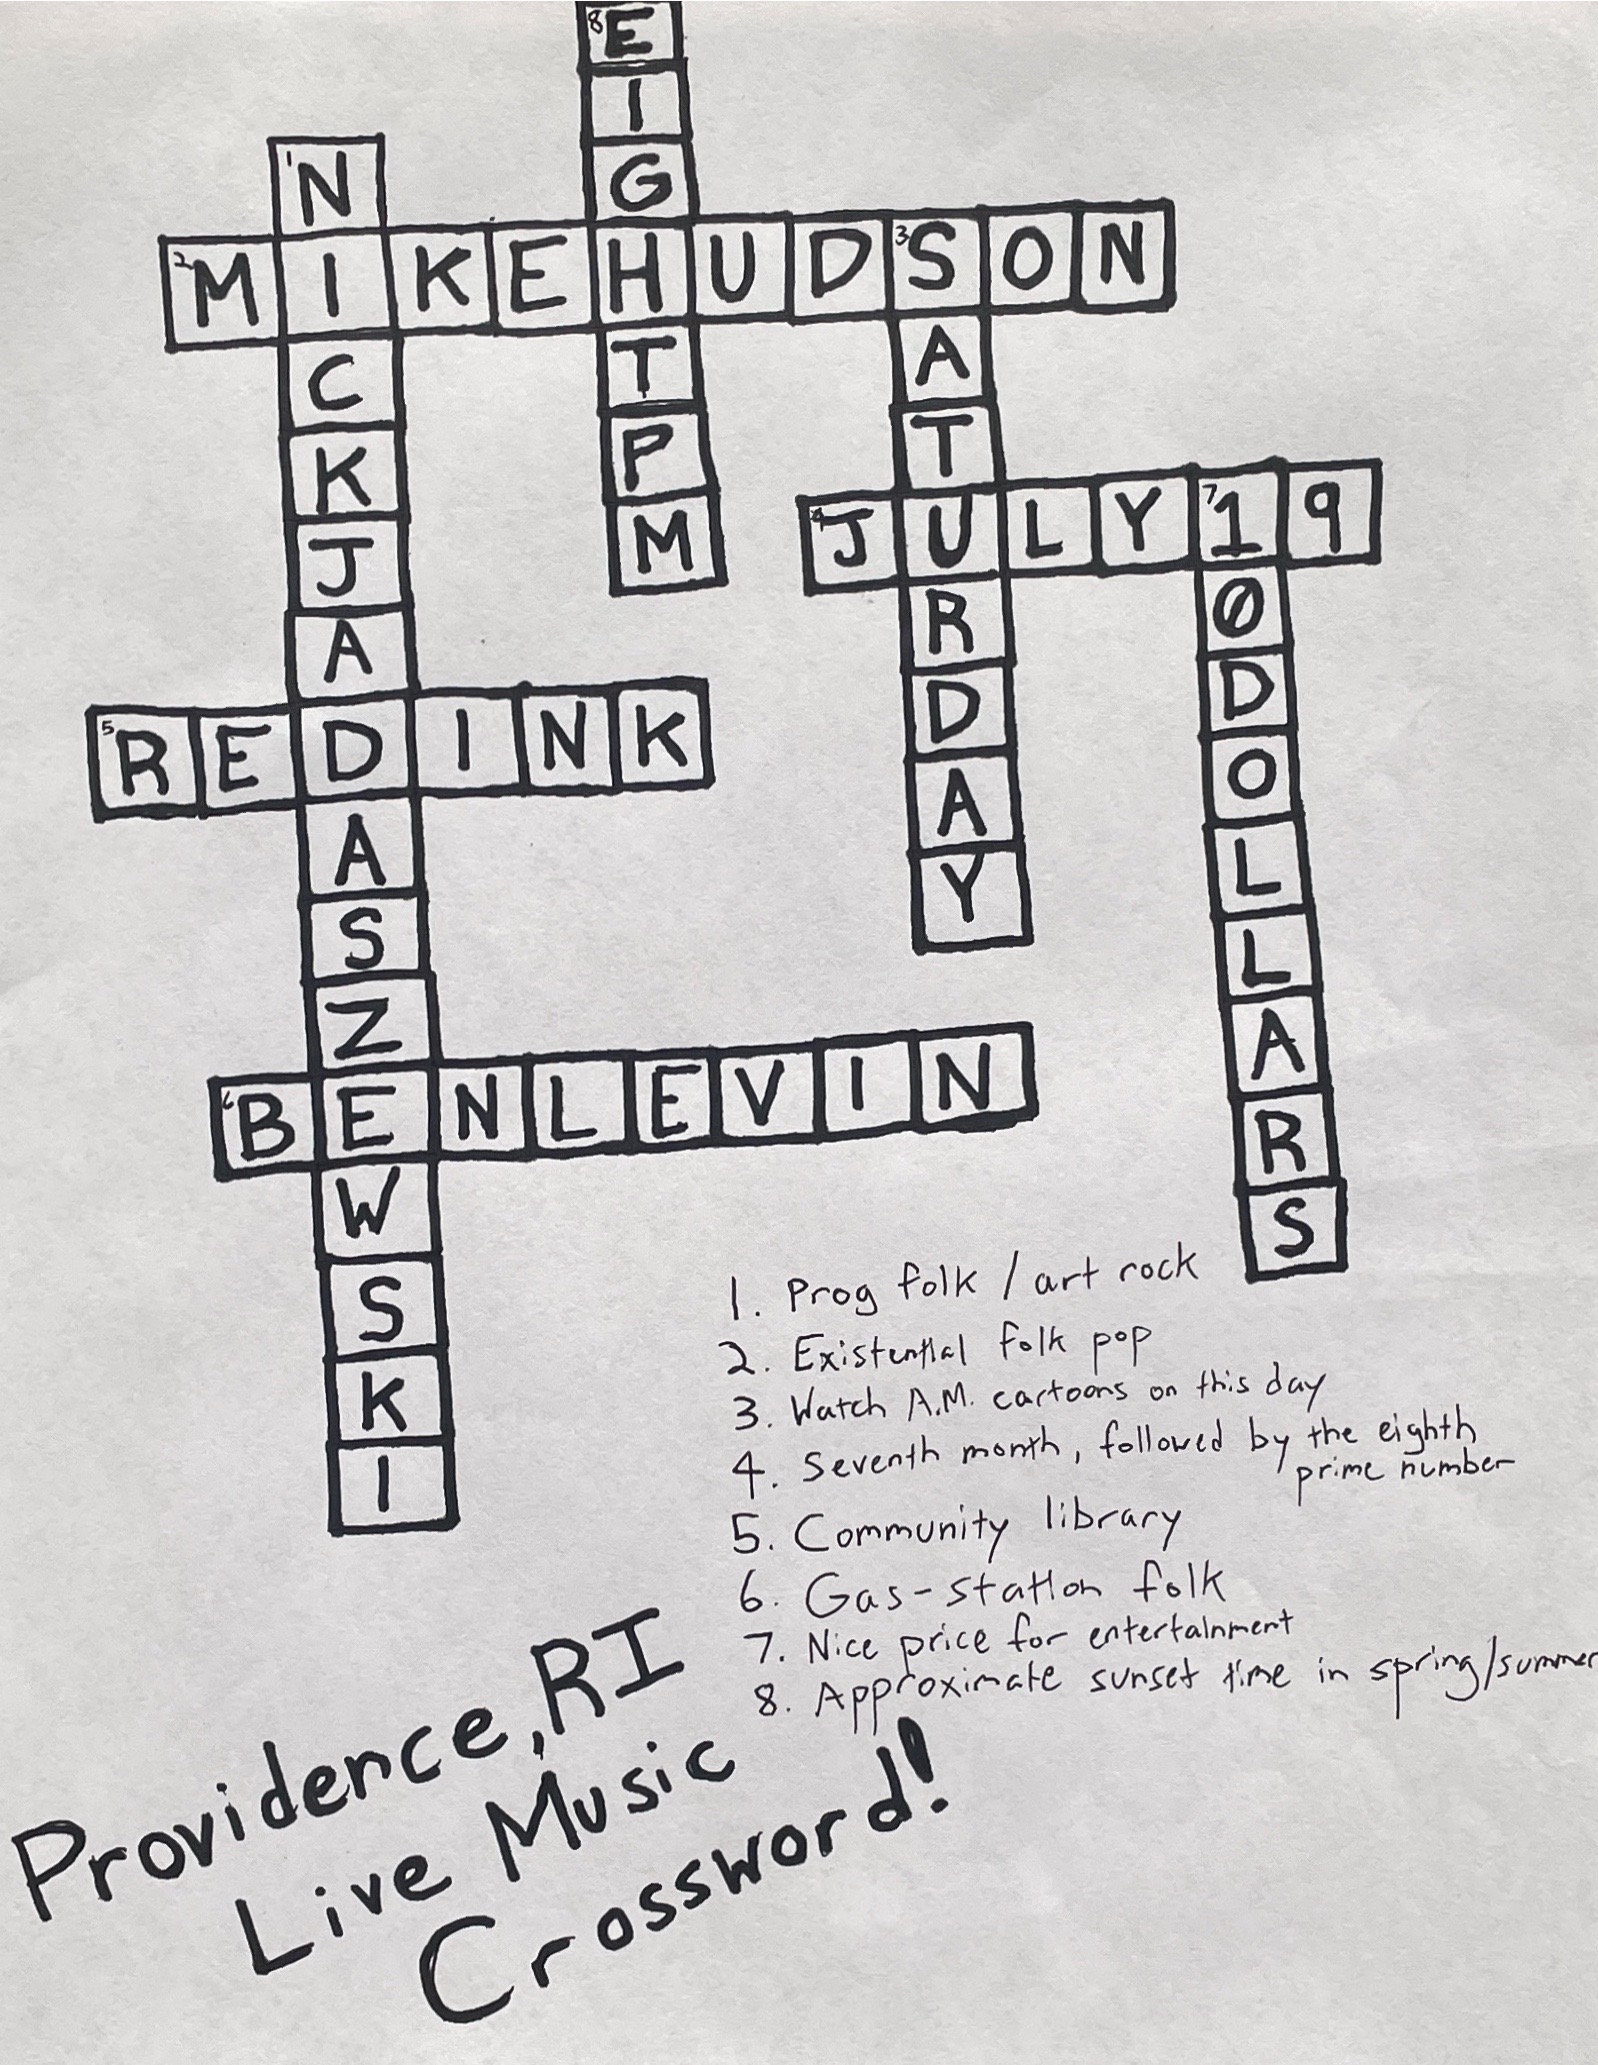 8 EIGHTPM
1 NICKJADASZEWSKI
2 MIKEHUDSON
3 SATURDAY
4 JULY19
7 10DOLLARS
5 REDINK
6 BENLEVIN
1. Prog folk / art rock
2. Existential folk pop
3. Watch A.M. cartoons on this day
4. Seventh month, followed by the eighth
prime number
5. Community library
6. Gas-station folk
7. Nice price for entertainment
8. Approximate sunset time in spring/summer
Providence, RI
Live Music
Crossword!